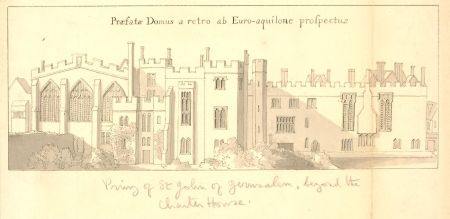 Præfatæ Domus a retro ab Euro-aquilone prospectus
Priory of St John of Jerusalem, beyond the
Charter House.